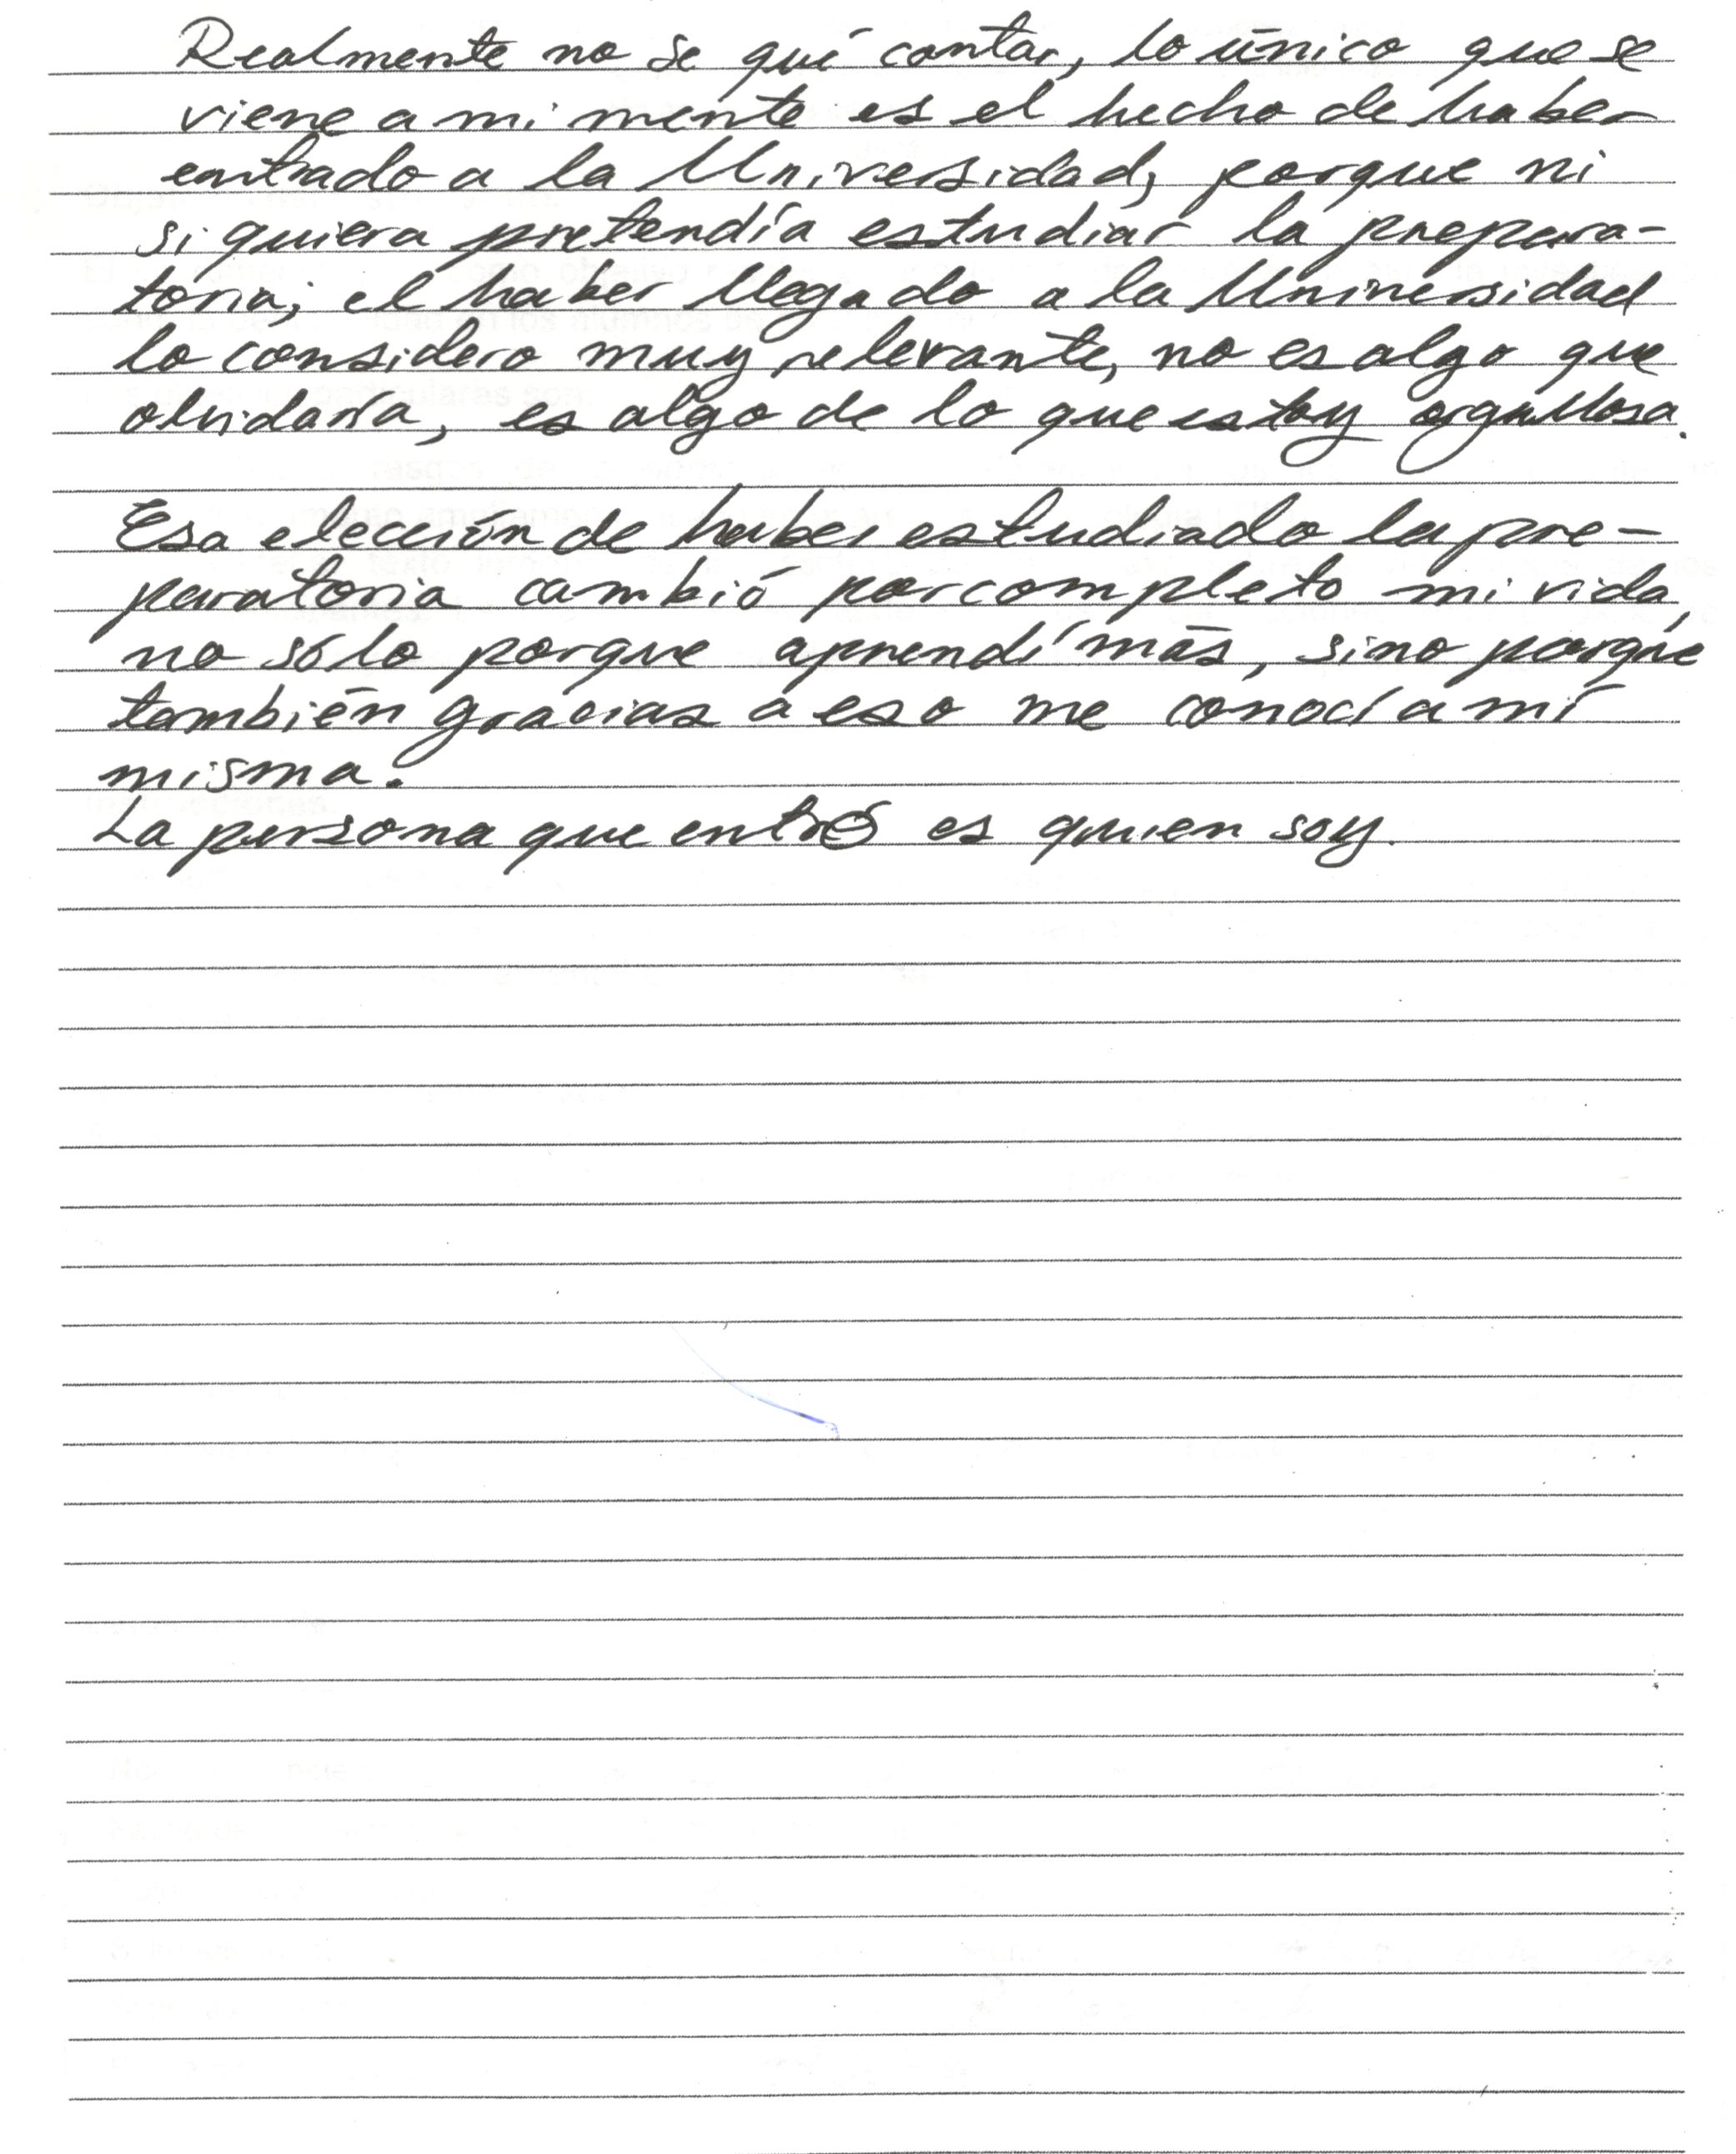 Realmente no se qué contar, lo único que se
viene a mi mente es el hecho de haber
entrado a la Universidad, porque ni
siquiera pretendía estudiar la prepara-
toria; el haber llegado a la Universidad
lo considero muy relevante, no es algo que
olvidaría, es algo de lo que estoy orgullosa.
Esa elección de haber estudiado la pre-
paratoria cambió por completo mi vida,
no sólo porque aprendí más, sino porque
también gracias a eso me conocí a mí
misma.
La persona que entró es quien soy.